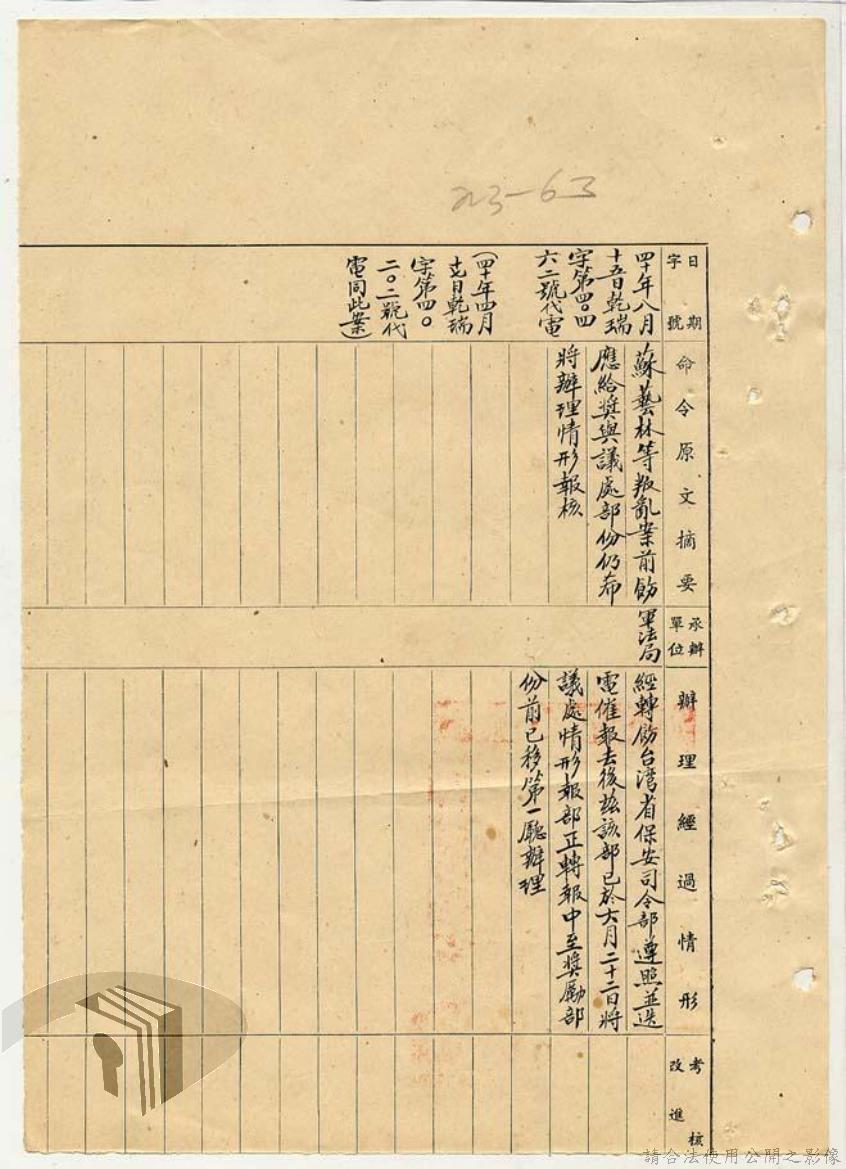 23-63
日期
字號
命令原文摘要
承辦
單位
辦理經過情形
考核
改進
四十年八月
十五日乾瑞
字第四〇四
六二號代電
(四十年四月
日乾瑞
字第四〇
二〇二號代
電同此案)
蘇藝林等叛亂案前飭
應給獎與議處部份仍希
將辦理情形報核
軍法局
經轉飭台灣省保安司令部遵照並迭
電催報去後茲該部已於六月二十二日將
議處情形報部正轉報中至獎勵部
份前已移第一廳辦理
請合法使用公開之影像